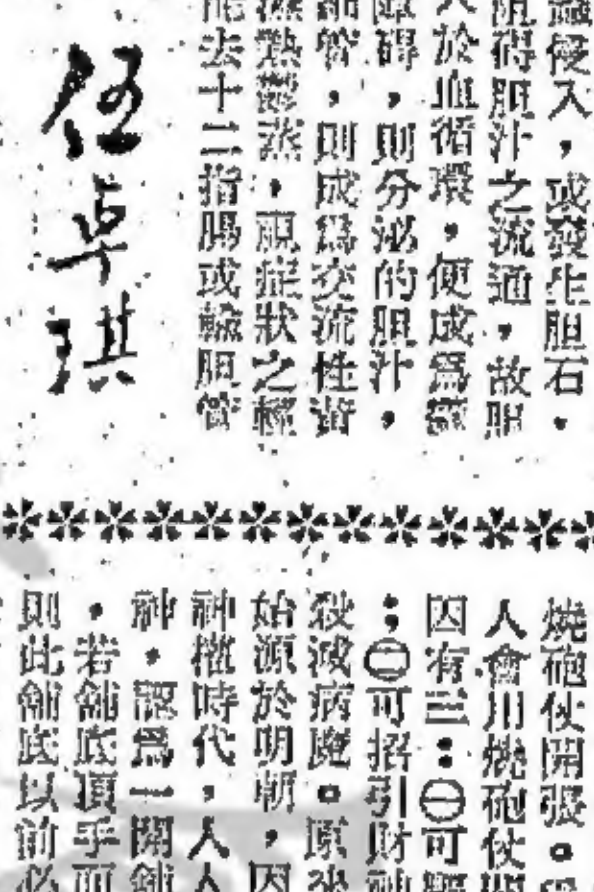 蟲侵入，或發生胆石，
阻碍胆汁之流通，故胆
入於血循環，便成爲
障碍，則分泌的胆汁，
細管，則成爲交流性
蒸熱鬱蒸，視症狀之輕
能去十二指腸或輸胆管
伍卓琪
燒砲仗開張。
人會用燒砲仗
因有三：㊀可
；㊁可招引財神
殺滅病魔。原來
始源於明朝，因
神權時代，人人
神，認爲一開鋪
，若鋪底頂手而
則此鋪底以前必